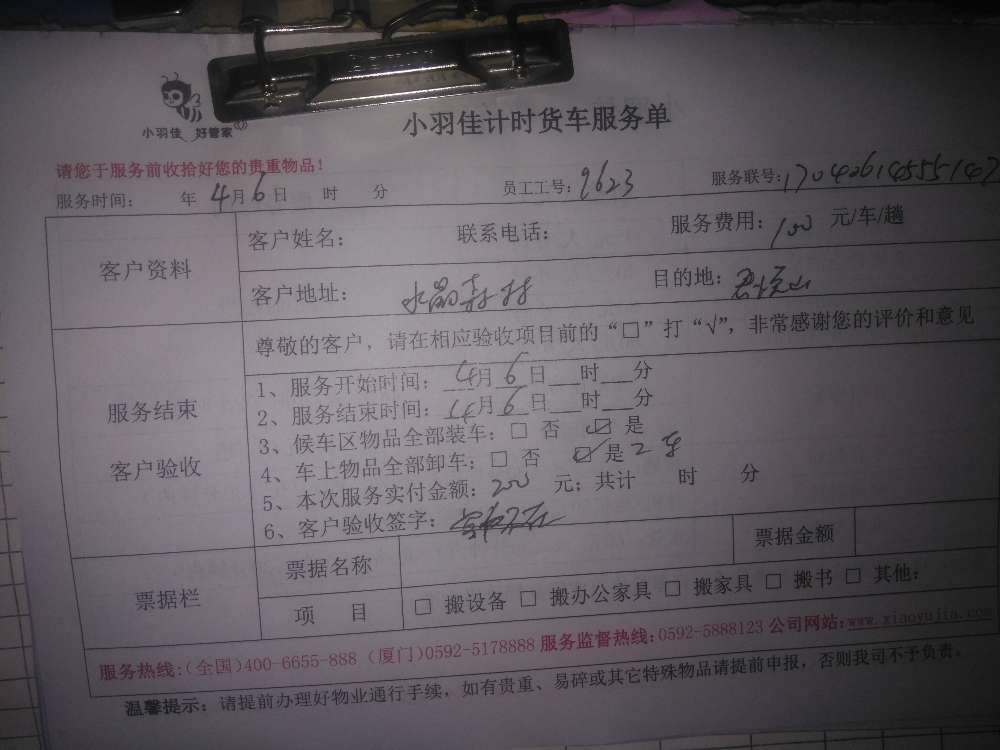 小羽佳 好管家
小羽佳计时货车服务单
请您于服务前收拾好您的贵重物品！
服务时间： 年 4月6日 时 分 员工工号：9623 服务联号：17042614555147
客户资料
客户姓名： 联系电话： 服务费用：100 元/车/趟
客户地址：水晶森林 目的地：
尊敬的客户，请在相应验收项目前的“□”打“√”，非常感谢您的评价和意见
服务结束
客户验收
1、服务开始时间：4月6日___时___分
2、服务结束时间：4月6日___时___分
3、候车区物品全部装车：□ 否 ☑ 是
4、车上物品全部卸车：□ 否 ☑ 是 2车
5、本次服务实付金额：200 元；共计 时 分
6、客户验收签字：
票据栏
票据名称 票据金额
项 目 □ 搬设备 □ 搬办公家具 □ 搬家具 □ 搬书 □ 其他：
服务热线：（全国）400-6655-888 （厦门）0592-5178888 服务监督热线：0592-5888123 公司网站：www.xiaoyujia.com
温馨提示：请提前办理好物业通行手续，如有贵重、易碎或其它特殊物品请提前申报，否则我司不予负责。